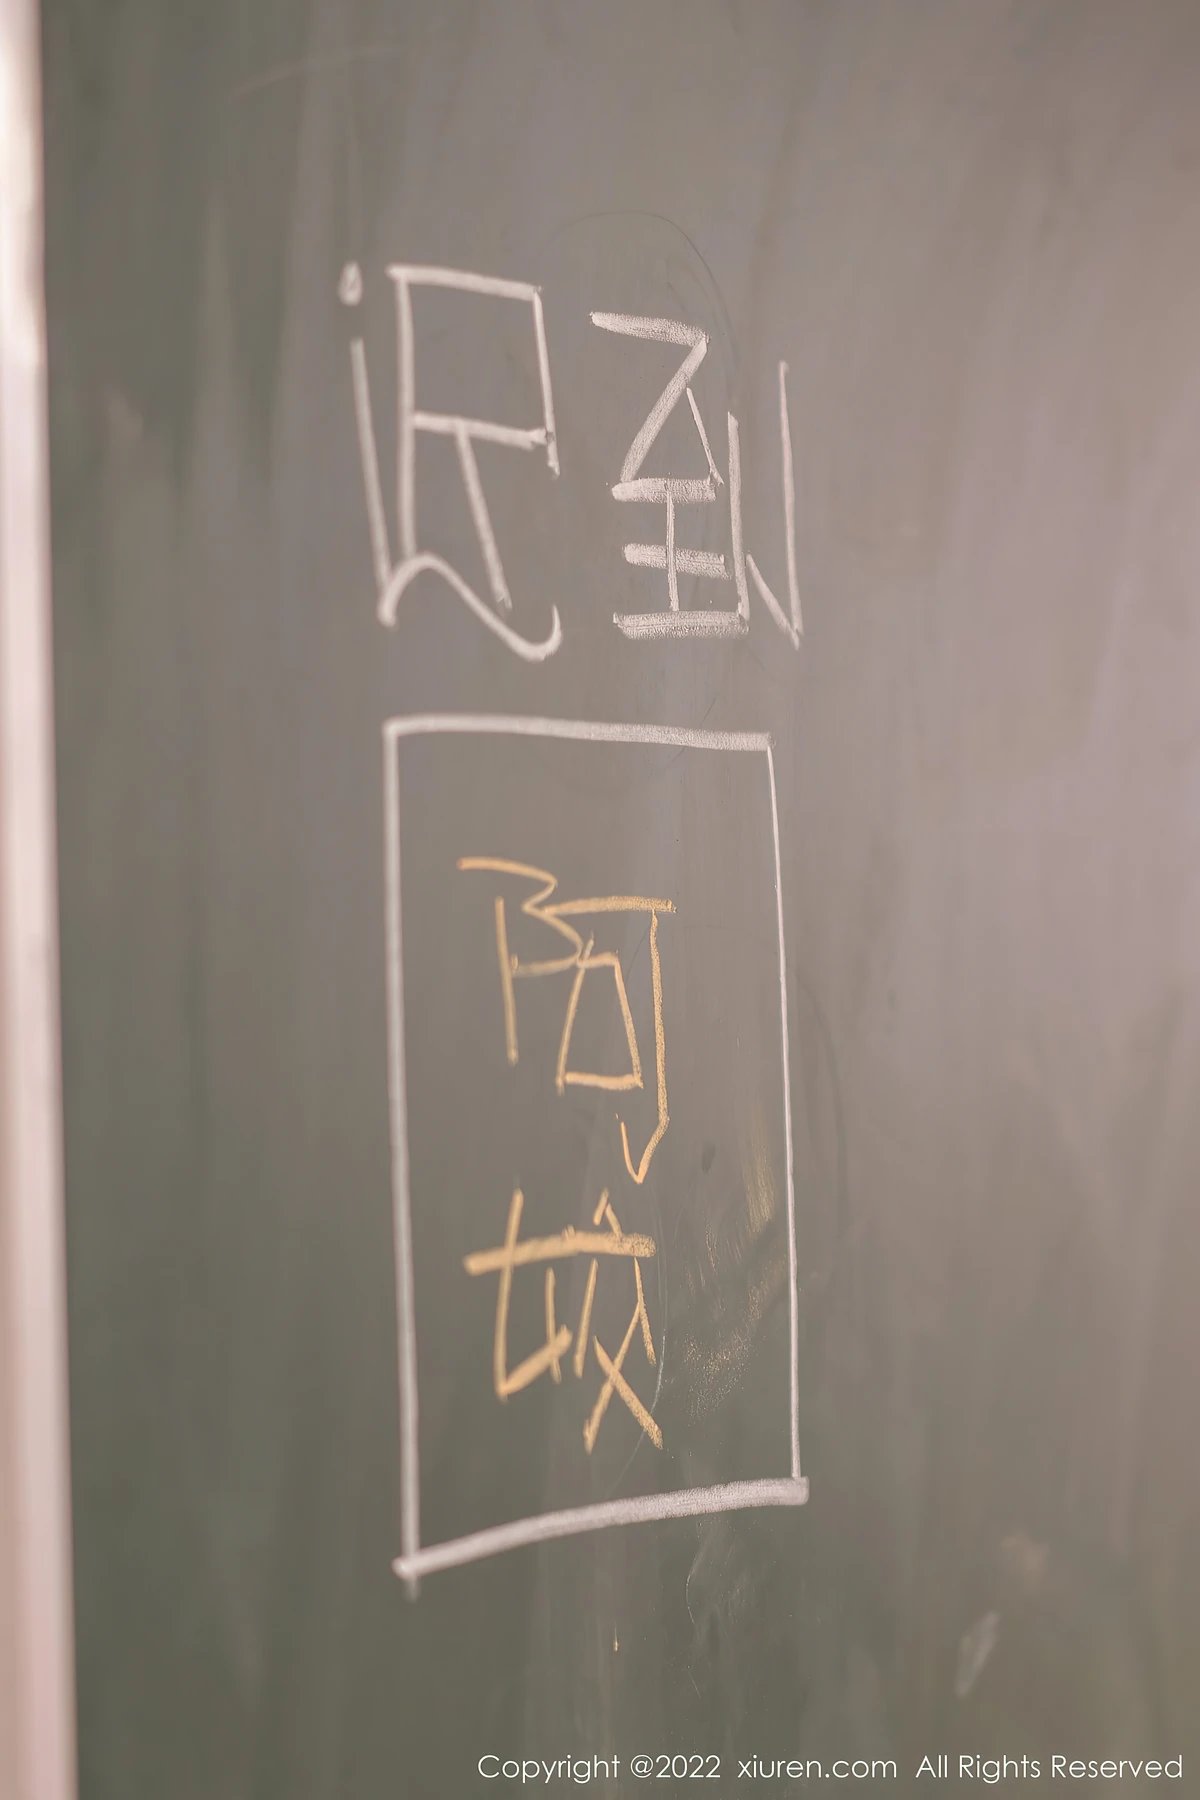 迟到
阿
姣
Copyright @2022 xiuren.com All Rights Reserved